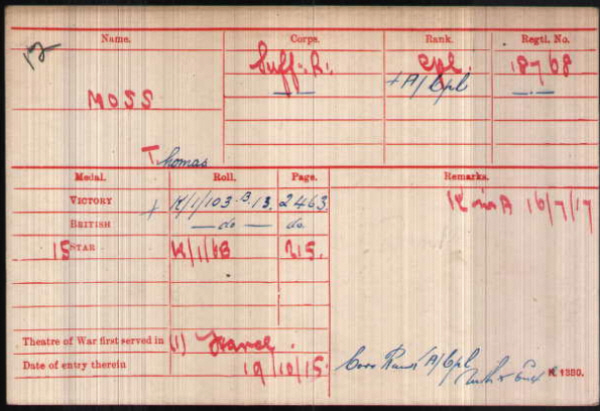 12
Name. Corps. Rank. Regtl. No.
Suff: R: Cpl. 18768
MOSS + A/Cpl
Thomas
Medal. Roll. Page. Remarks.
VICTORY + K/1/103.B.13. 2463. K in A 16/7/17
BRITISH — do — do.
15 STAR K/1/6B 215.
Theatre of War first served in (1) France.
Date of entry therein 19/10/15.
A/Cpl
K 1380.